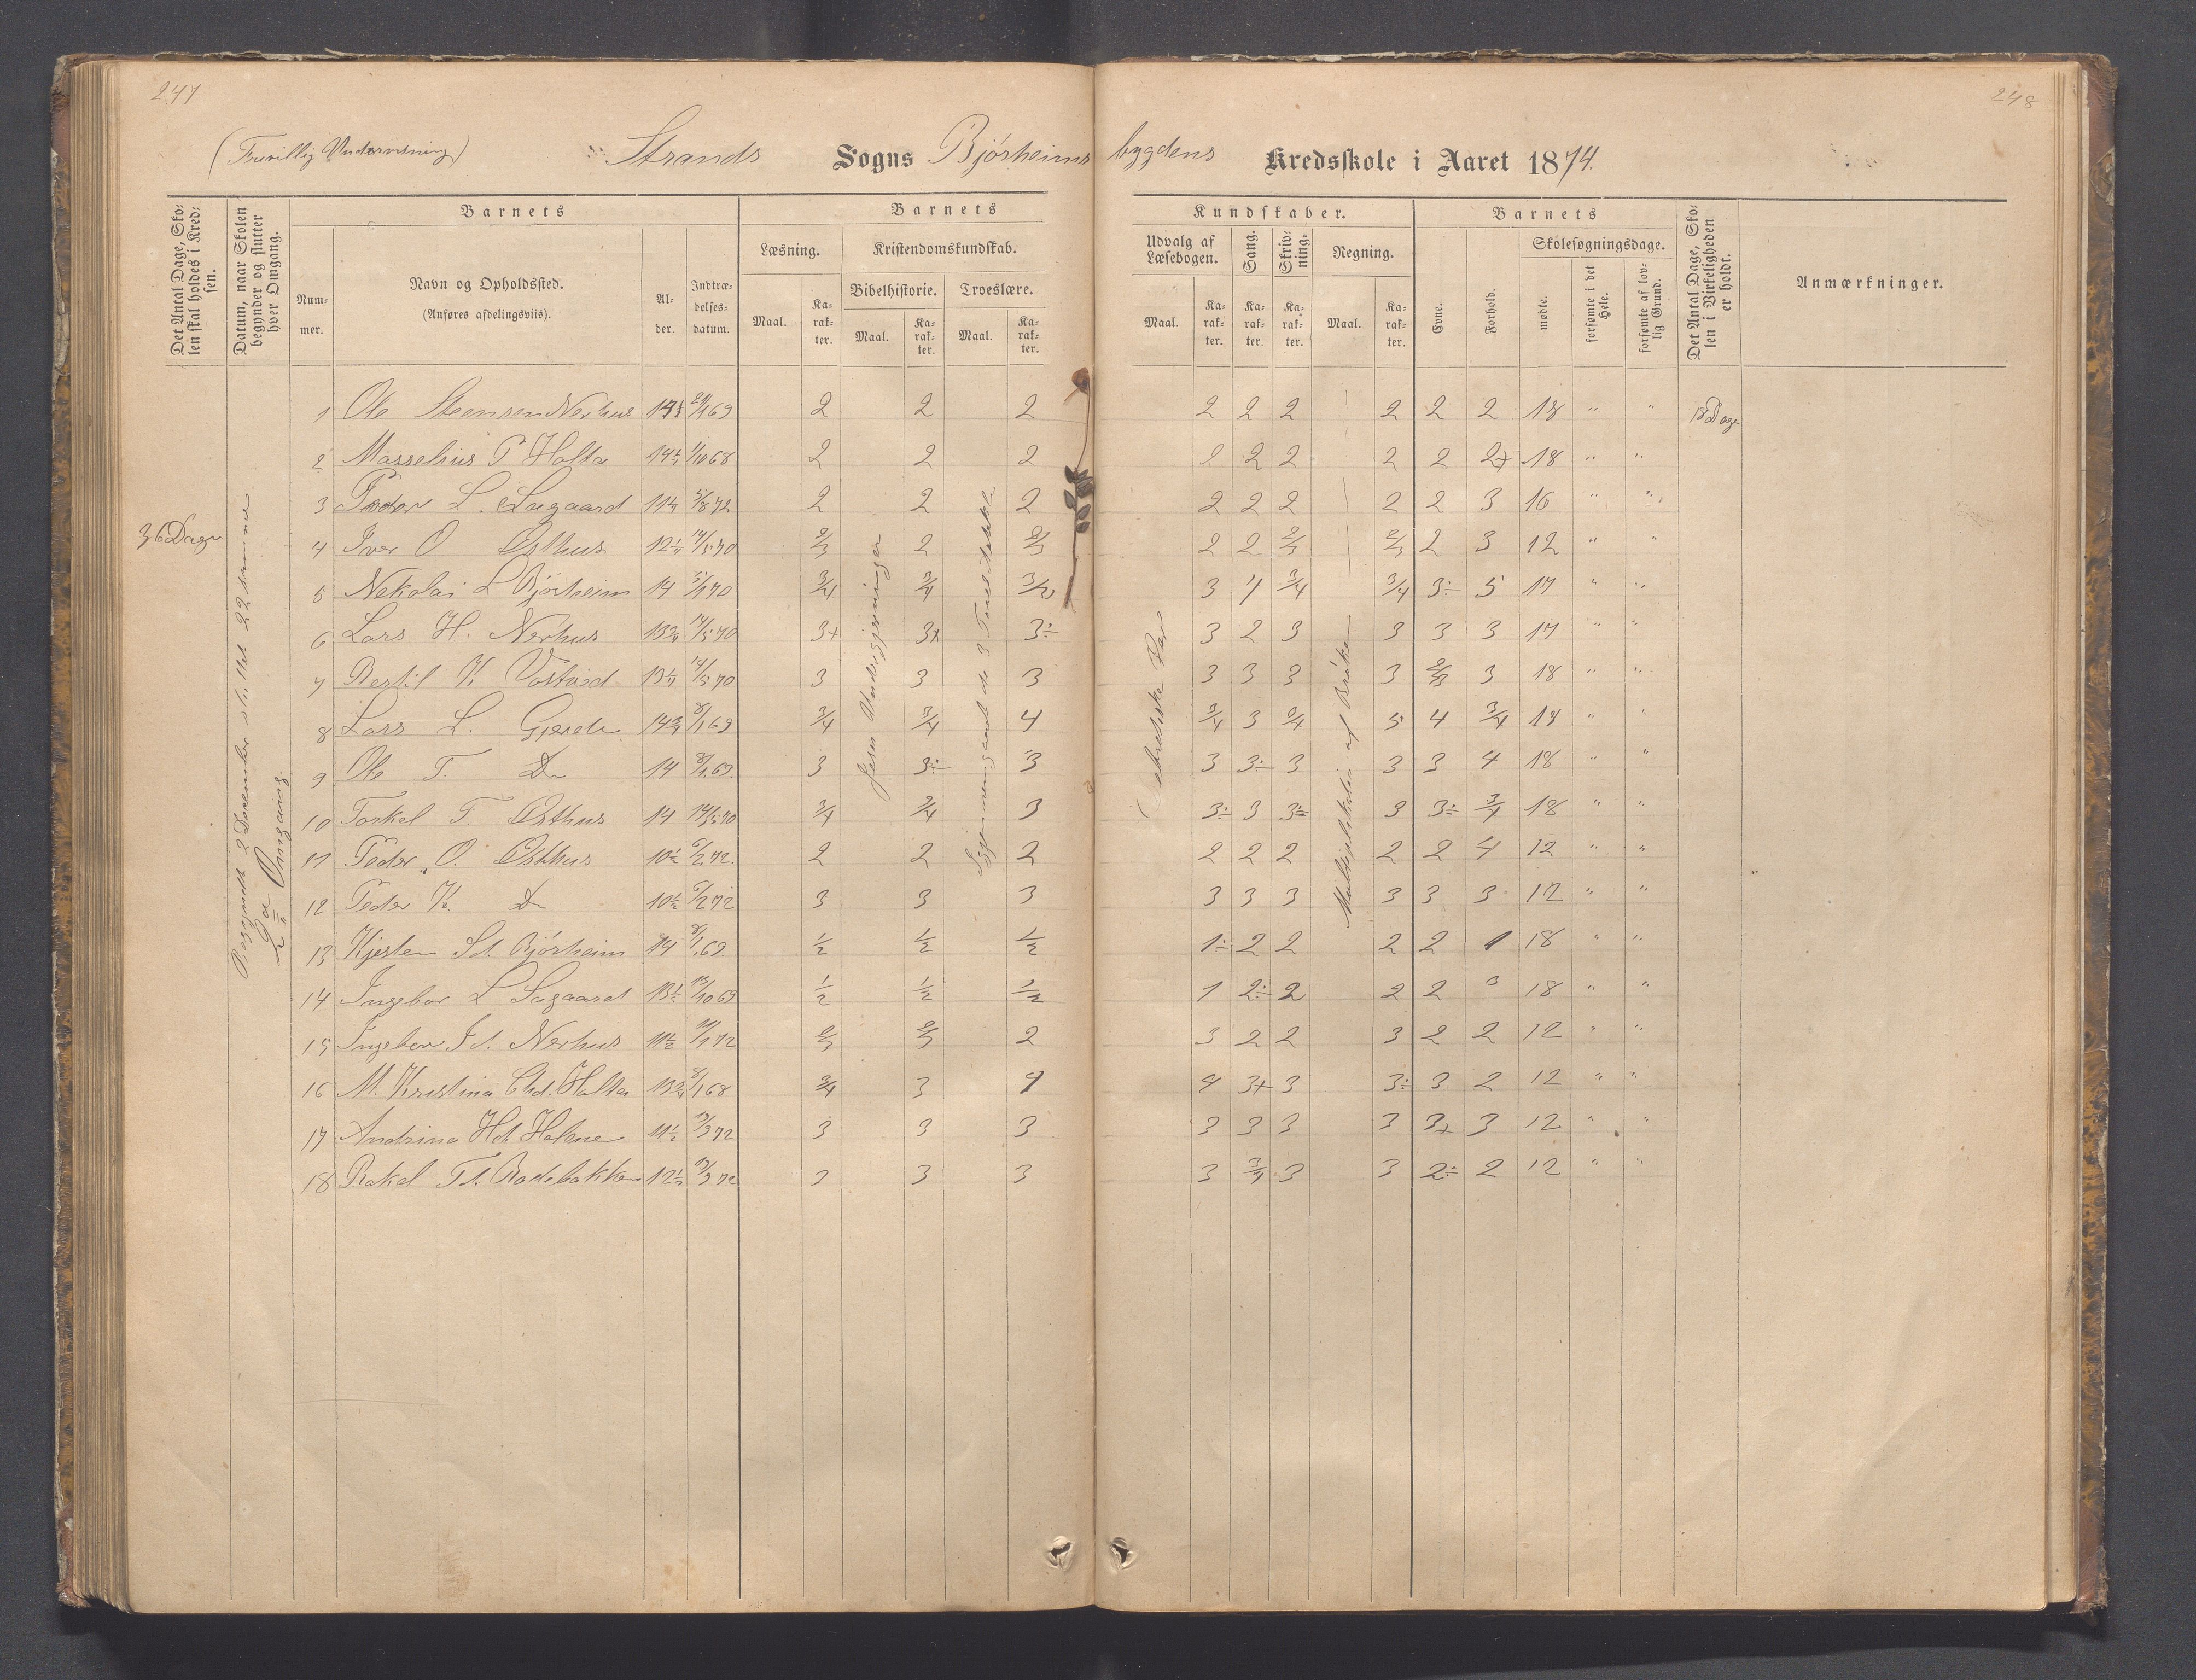 247
248
(Frivillig Undervisning)
Strands Sogns Bjørheims bygdens Kredsskole i Aaret 1874.
Det Antal Dage, Skolen skal holdes i Kredsen.
Datum, naar Skolen begynder og slutter hver Omgang.
Barnets
Nummer.
Navn og Opholdssted.
(Anføres afdelingsviis).
Alder.
Indtrædelsesdatum.
Barnets
Læsning.
Maal.
Karakter.
Kristendomskundskab.
Bibelhistorie.
Maal.
Karakter.
Troeslære.
Maal.
Karakter.
Kundskaber.
Udvalg af Læsebogen.
Maal.
Karakter.
Sang.
Karakter.
Skrivning.
Karakter.
Regning.
Maal.
Karakter.
Barnets
Evne.
Forhold.
Skolesøgningsdage.
mødte.
forsømte i det Hele.
forsømte af lovlig Grund.
Det Antal Dage, Skolen i Virkeligheden er holdt.
Anmærkninger.
36 Dage
2den Omgang.
Jesu Undergjerninger
Multiplikation af Brøker
1 Ole Steensen Nerhus 2 2 2 2 2 2 2 2 2 18 " " 18 Dage
2 Masselius P Holta 14½ 1/10 68 2 2 2 2 2 2 2 2 2+ 18 " "
3 Peder L. Lægaard 5/8 72 2 2 2 2 2 2 2 2 3 16 " "
4 Iver O Østhus 14/5 70 2/3 2 2/3 2 2 2/3 2/3 2 3 12 " "
5 Nekolai L Bjørheim 14 3/4 3/4 3 3/4 3/4 3÷ 5 17 " "
6 Lars H. Nerhus 14/5 70 3+ 3+ 3÷ 3 2 3 3 3 3 17 " "
7 Bertil K Vostad 14/5 70 3 3 3 3 3 3 3 2/3 3 18 " "
8 Lars L. Gjerde 8/1 69 3/4 3/4 4 3/4 3 3/4 5 4 3/4 18 " "
9 Ole T. Do 14 8/1 69 3 3÷ 3 3 3÷ 3 3 3 4 18 " "
10 Torkel T Østhus 14 14/5 70 3/4 3/4 3 3÷ 3 3÷ 3 3÷ 3/4 18 " "
11 Peder O. Østhus 10½ 6/2 72 2 2 2 2 2 2 2 2 4 12 " "
12 Peder K. Do 10½ 6/2 72 3 3 3 3 3 3 3 3 3 12 " "
13 Kjesten Sd. Bjørheim 14 8/1 69 1/2 1/2 1/2 1÷ 2 2 2 2 1 18 " "
14 Ingebor L Lægaard 13½ 13/10 69 1/2 1/2 1/2 1 2÷ 2 2 2 3 18 " "
15 Ingebor Id. Nerhus 11½ 2/3 2/3 2 3 2 2 3 2 2 12 " "
16 M. Kristina Chd. Holta 8/1 68 3/4 3 4 4 3+ 3 3÷ 3 2 12 " "
17 Andrina Hd. Holme 11½ 13/3 72 3 3 3 3 3 3 3 3+ 3 12 " "
18 Rakel Td. Rodebakken 13/3 72 3 3 3 3 3/4 3 3 2÷ 2 12 " "
36 Dage